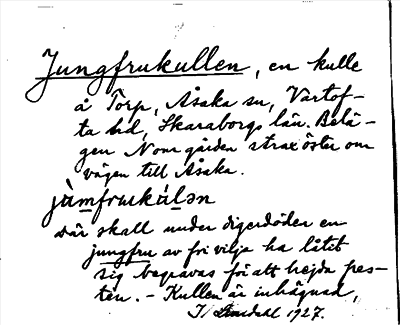 Jungfrukullen, en kulle
å Torp, Åsaka sn, Vartof-
ta hd, Skaraborgs län. Belä-
gen Norr gården strax öster om
vägen till Åsaka.
jàmfrukálən
där skall under digerdöden en
jungfru av fri vilja ha låtit
sig begravas för att hejda pes-
ten. - Kullen är inhägnad,
Lindal 1927.